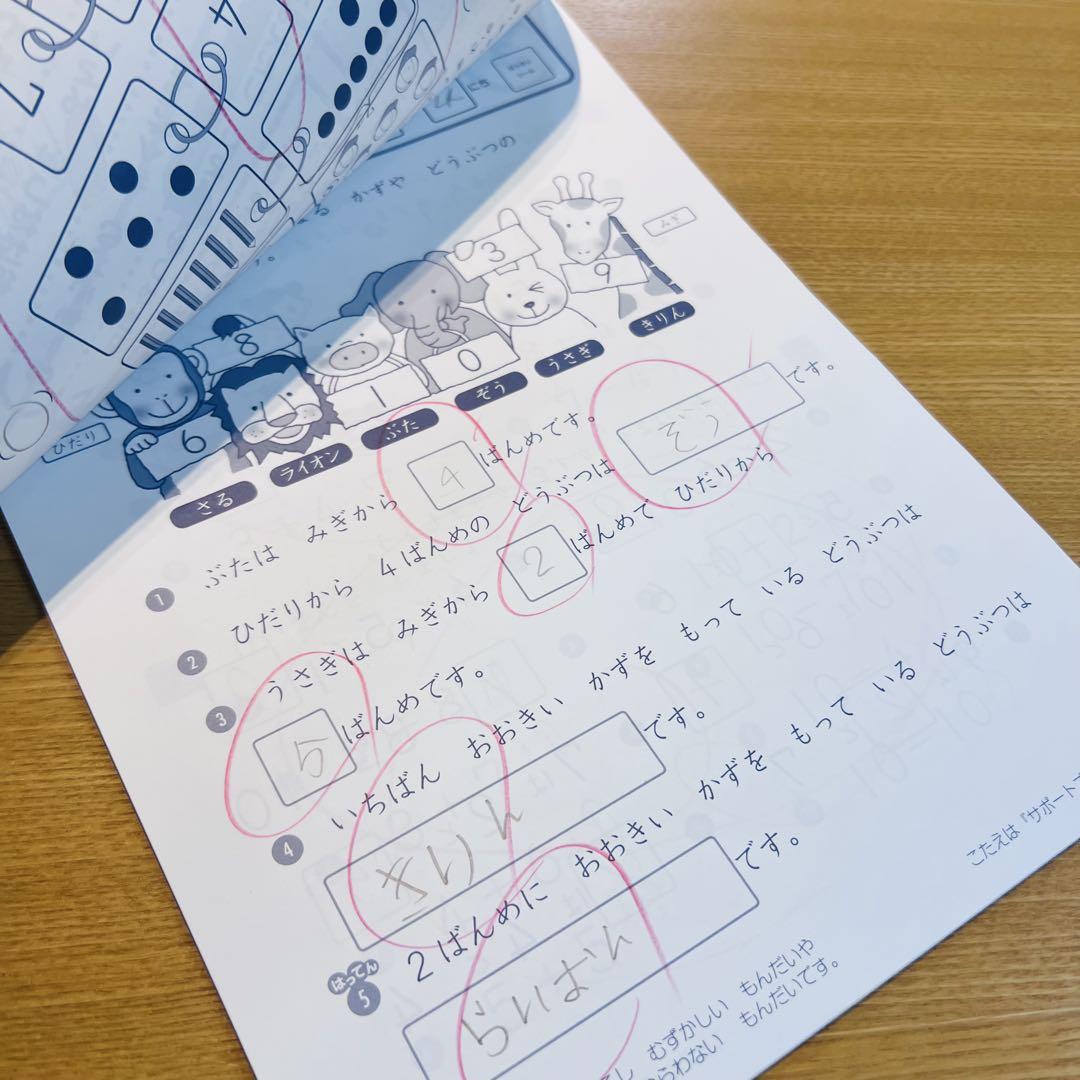 7
4
にち
かずや どうぶつの
ひだり
みぎ
6
8
1
0
3
9
さる
ライオン
ぶた
ぞう
うさぎ
きりん
1 ぶたは みぎから 4 ばんめです。
2 ひだりから 4ばんめの どうぶつは ぞう です。
3 うさぎは みぎから 2 ばんめで ひだりから
5 ばんめです。
4 いちばん おおきい かずを もって いる どうぶつは
きりん です。
はってん
5 2ばんめに おおきい かずを もって いる どうぶつは
らいおん です。
こたえは『サポート
むずかしい もんだいや
らわない もんだいです。